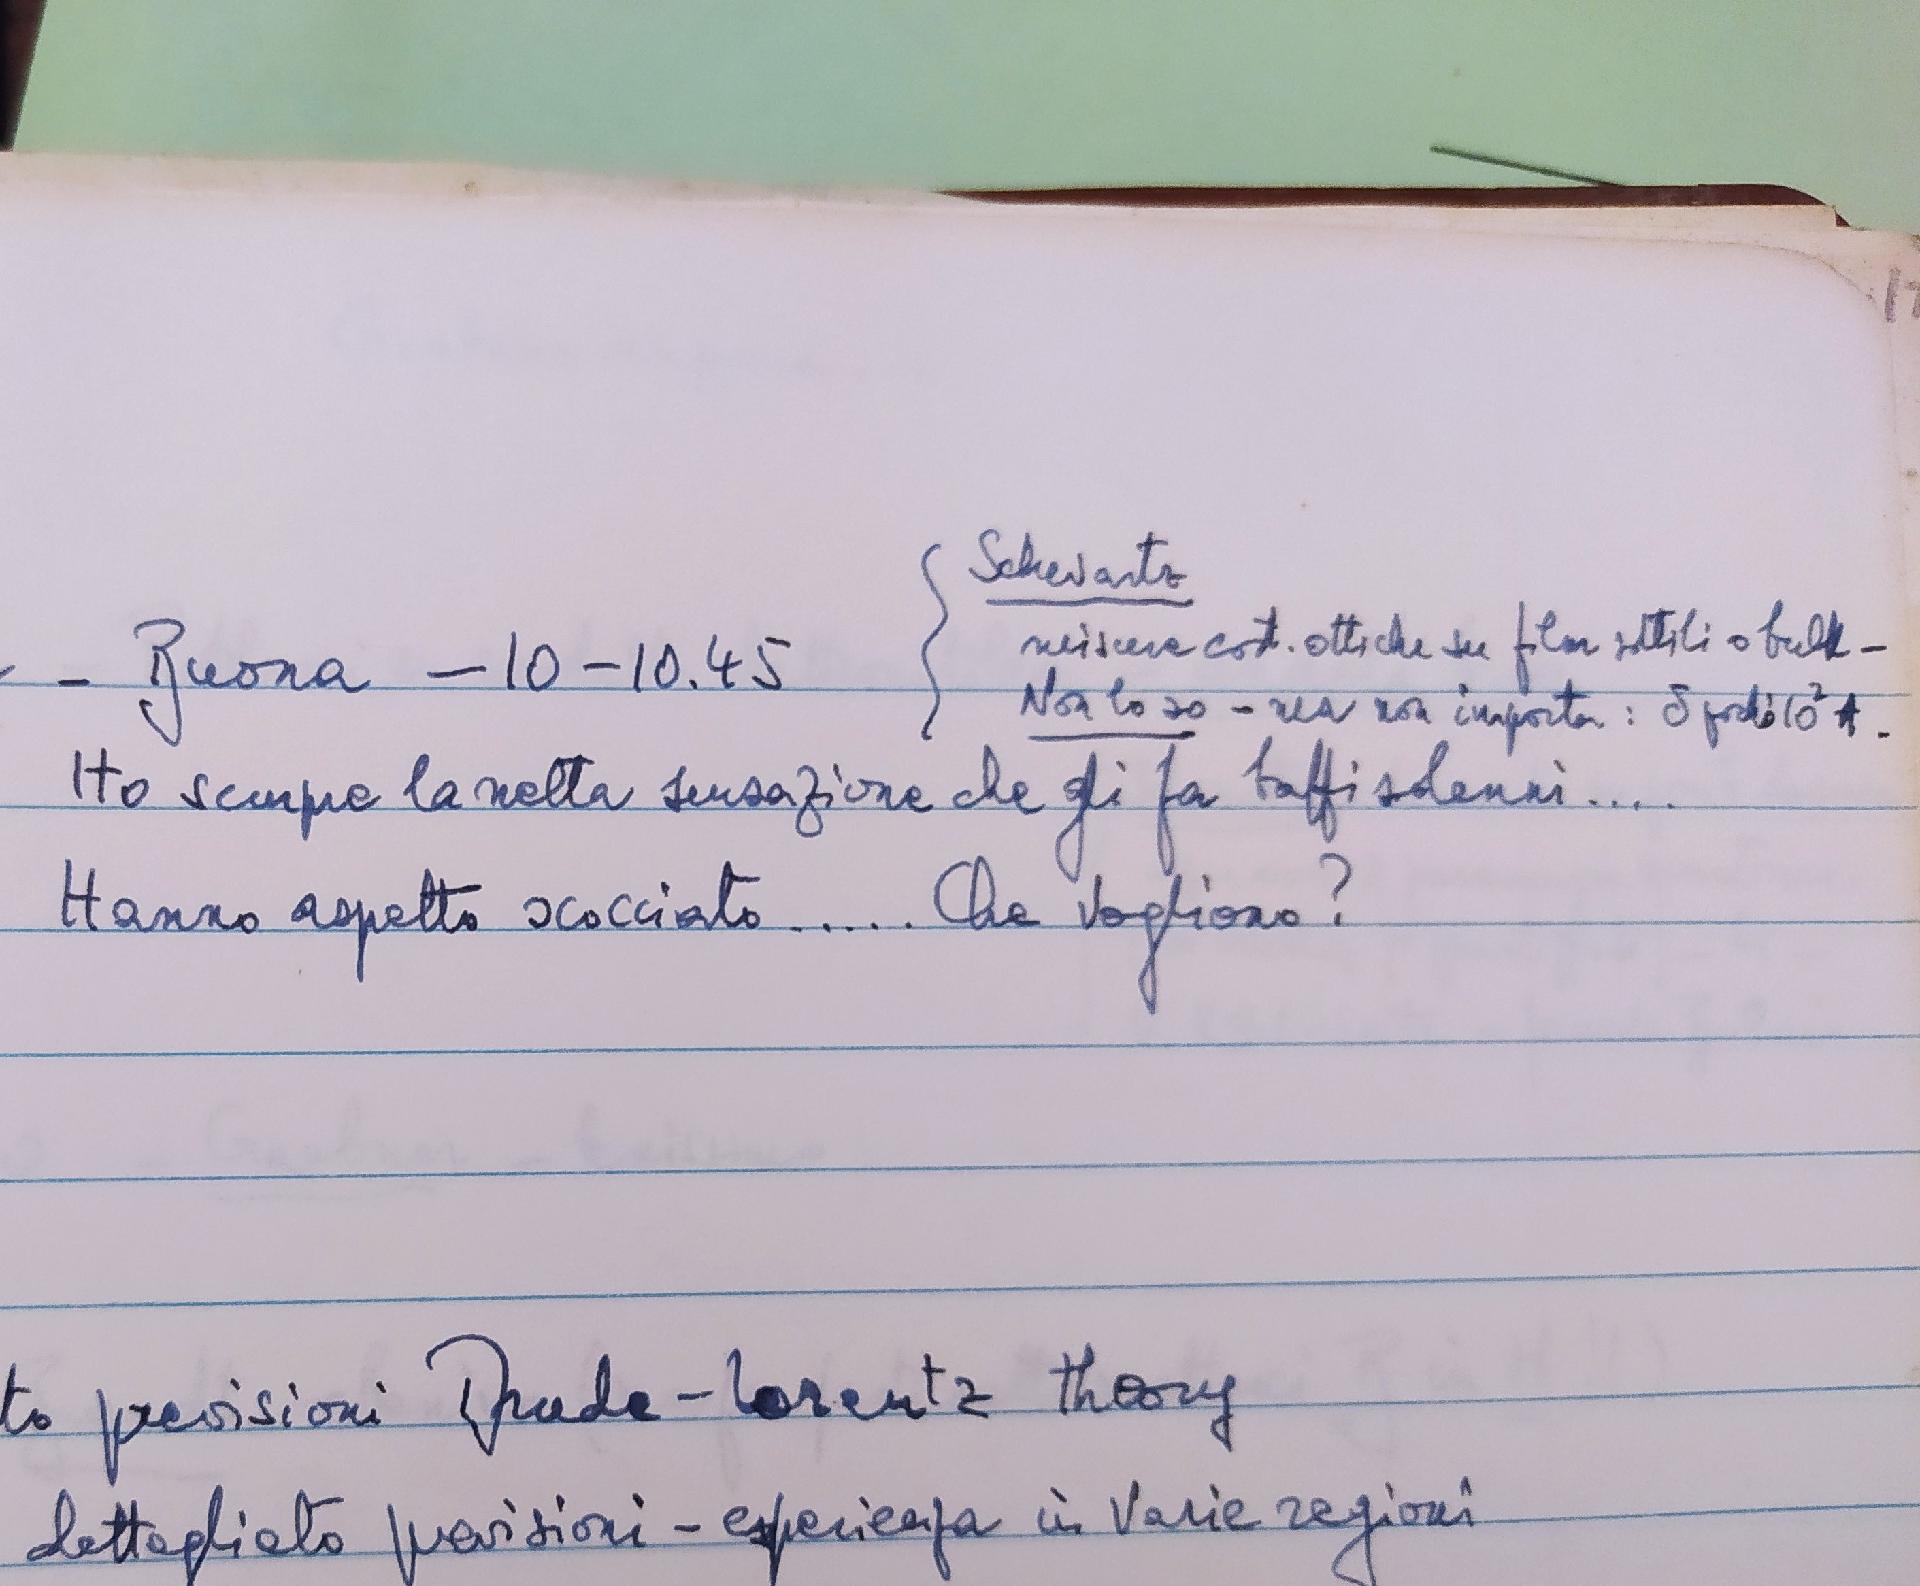 17
Schwartz
- Buona - 10 - 10.45
misure cost. ottiche su film sottili o bulk -
Non lo so - ma non importa : δ pochi 10² Å.
Ho sempre la netta sensazione che gli fa baffi solenni....
Hanno aspetto scocciato ..... Che vogliono?
to previsioni Drude-Lorentz theory
dettagliato previsioni - esperienza in varie regioni